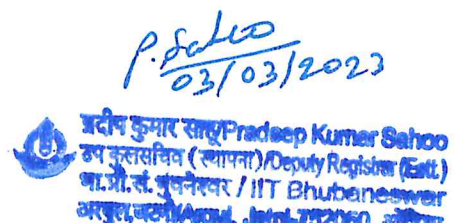 P. Sahoo
03/03/2023
प्रदीप कुमार साहू/Pradeep Kumar Sahoo
उप कुलसचिव (स्थापना)/Deputy Registrar (Estt.)
भा.प्रौ.सं. भुवनेश्वर / IIT Bhubaneswar
अरगुल, जटनी/Argul, Jatni-752050,